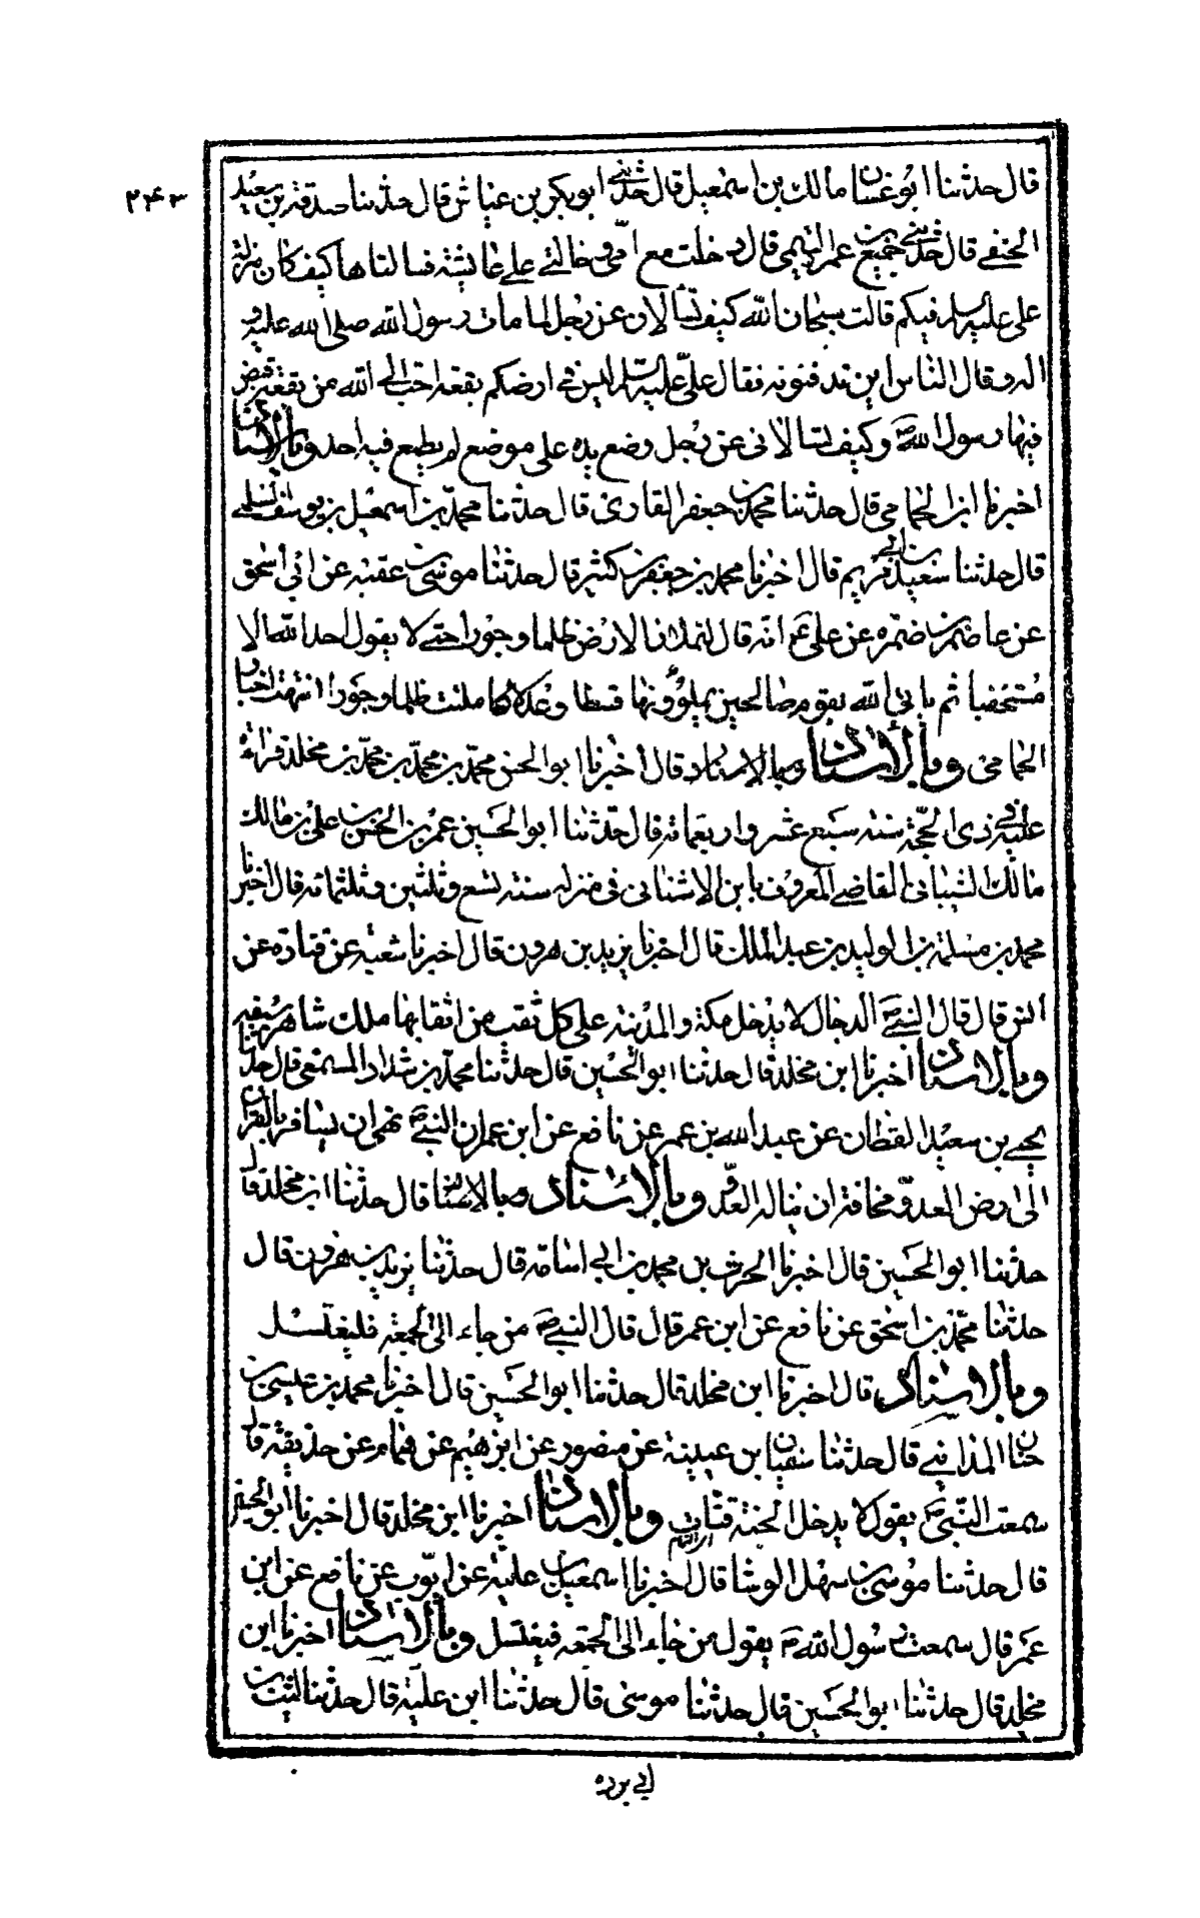 ۲۴۳
قال حدثنا ابو غسان مالك بن اسمعيل قال حدثنى ابو بكر بن عياش قال حدثنا صدقة بن سعيد
الحنفى قال حدثنى جميع بن عمر التيمى قال دخلت مع امى و خالتى على عائشة فسالتاها كيف كان منزلة
على عليه السلم فيكم قالت سبحان الله كيف تسألان عن رجل لما مات رسول الله صلى الله عليه و
اله و قال الناس اين تدفنونه فقال علىّ عليه السلم ليس فى ارضكم بقعة احبّ الى الله من بقعة قبض
فيها رسول الله ص وكيف تسالانى عن رجل وضع يده على موضع لم يطمع فيه احد وبالاسناد
اخبرنا ابن الحمامى قال حدثنا محمد بن جعفر القارى قال حدثنا محمد بن اسمعيل بن يوسف السلمى
قال حدثنا سعيد بن ابى مريم قال اخبرنا محمد بن جعفر بن كثير قال حدثنا موسى بن عقبة عن ابى اسحق
عن عاصم بن ضمره عن على ع انه قال لتملان الارض ظلما وجورا حتى لا يقول احد الله الا
مستخفيا ثم ياتى الله بقوم صالحين يملؤونها قسطا وعدلا كما ملئت ظلما وجورا انتهت اخبار
الحمامى وبالاسناد وبالاسناد قال اخبرنا ابو الحسن محمّد بن محمّد بن محمّد بن مخلد قراءة
عليه فى ذى الحجّة سنة سبع عشر واربعمائة قال حدّثنا ابو الحسين عمر بن الحسن بن على بن مالك
مالك الشيبانى القاضى المعروف بابن الاشنانى فى منزله سنة تسع وثلثين وثلثمائة قال اخبرنا
محمد بن مسلمة بن الوليد بن عبد الملك قال اخبرنا يزيد بن هرون قال اخبرنا شعبة عن قتادة عن
انس قال قال النبى ص الدجال لا يدخل مكة والمدينة على كل نقب من انقابها ملك شاهر سيفه
وبالاسناد اخبرنا ابن مخلد قال حدثنا ابو الحسين قال حدثنا محمّد بن شداد المسمعى قال حدثنا
يحيى بن سعيد القطان عن عبد الله بن عمر عن نافع عن ابن عمر ان النبى ص نهى ان يسافر بالقران
الى ارض العدوّ مخافة ان يناله العدوّ وبالاسناد وبالاسناد قال حدثنا ابن مخلد قال
حدثنا ابو الحسين قال اخبرنا الحرث بن محمد بن ابى اسامة قال حدثنا يزيد بن هرون قال
حدثنا محمّد بن اسحق عن نافع عن ابن عمر قال قال النبى ص من جاء الى الجمعة فليغتسل
وبالاسناد قال اخبرنا ابن مخلد قال حدثنا ابو الحسين قال اخبرنا محمد بن عيسى بن
حنان المداينى قال حدثنا سفيان بن عيينة عن منصور عن ابرهيم عن همام عن حذيفة قال
سمعت النبى ص يقول لا يدخل الجنة قتات وبالاسناد اخبرنا ابن مخلد قال اخبرنا ابو الحسين
قال حدثنا موسى بن سهل الوشا قال اخبرنا اسمعيل بن علية عن ايوب عن نافع عن ابن
عمر قال سمعت رسول الله ص يقول من جاء الى الجمعة فليغتسل وبالاسناد اخبرنا ابن
مخلد قال حدثنا ابو الحسين قال حدثنا موسى قال حدثنا ابن علية قال حدثنا ليث بن
ابى برده